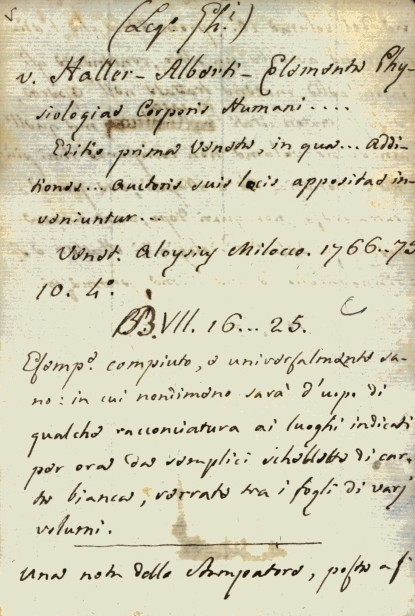 (Leg. Ch.)
v. Haller - Alberti - Elementa Phy-
siologiae Corporis Humani....
Editio prima Veneta, in qua... addi-
tiones... auctoris suis locis appositae in-
veniuntur...
Venet. Aloysius Milocco. 1766..75
10. 4°
BB. VII. 16... 25.
Esemp.e compiuto, e universalmente sa-
no: in cui nondimeno sarà d'uopo di
qualche racconciatura ai luoghi indicati
per ora da semplici schedette di car-
ta bianca, serrate tra i fogli di varj
volumi.
Una nota dello Stampatore, posta a f